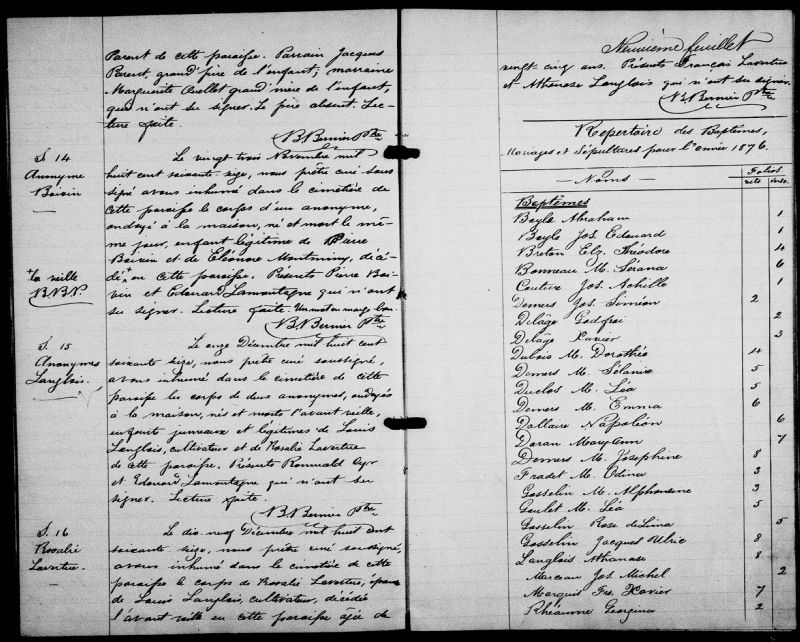 Parent de cette paroisse. Parrain Jacques
Parent, grand père de l'enfant; marraine
Marguerite Ouellet grand'mère de l'enfant,
qui n'ont su signer. Le père absent. Lec-
ture faite.
N.B. Bernier Ptre
S. 14
Anonyme
Boivin
Le vingt trois Novembre mil
huit cent soixante seize, nous prêtre curé sous-
signé avons inhumé dans le cimetière de
cette paroisse le corps d'un anonyme,
ondoyé à la maison, né et mort le mê-
me jour, enfant légitime de Pierre
Boivin et de Eléonore Montminy, décé-
dé + en cette paroisse. Présents Pierre Boi-
vin et Edouard Lamontagne qui n'ont
su signer. Lecture faite. Un mot en marge bon.
N.B. Bernier Ptre
+ la veille
N.B.B. P.
S. 15
Anonymes
Langlois.
Le onze Décembre mil huit cent
soixante seize, nous prêtre curé soussigné,
avons inhumé dans le cimetière de cette
paroisse les corps de deux anonymes, ondoyés
à la maison, nés et morts l'avant veille,
enfants jumeaux et légitimes de Louis
Langlois, cultivateur et de Rosalie Lavertue
de cette paroisse. Présents Romuald
et Edouard Lamontagne qui n'ont su
signer. Lecture faite.
N.B. Bernier Ptre
S. 16
Rosalie
Lavertue.
Le dix-neuf Décembre mil huit cent
soixante seize, nous prêtre curé soussigné,
avons inhumé dans le cimetière de cette
paroisse le corps de Rosalie Lavertue, épouse
de Louis Langlois, cultivateur, décédée
l'avant veille en cette paroisse âgée de
Neuvième feuillet
vingt-cinq ans. Présents François Lavertue
et Athanase Langlois qui n'ont su signer.
N.B. Bernier Ptre
Repertoire des Baptêmes,
Mariages et Sépultures pour l'année 1876.
— Noms — Folios
rcto verso.
Baptêmes
Boyle Abraham 1
Boyle Jos. Edouard 1
Breton Elz. Théodore 4
Bonneau M. Sérana 6
Couture Jos. Achille 1
Demers Jos. Siméon 2
Delâge Godfroi 2
Delâge Xavier 3
Dubois M. Dorothée 4
Demers M. Mélanie 5
Duclos M. Léa 5
Demers M. Emma 6
Dallaire Napoléon 6
Doran Mary Ann 7
Demers M. Josephine 8
Fradet M. Odina 3
Gosselin M. Alphonsine 3
Goulet M. Léa 5
Gosselin Rose de Lima 5
Gosselin Jacques Ulric 8
Langlois Athanase 8
Marceau Jos. Michel 2
Marquis Frs. Xavier 7
Rhéaume Georgina 2